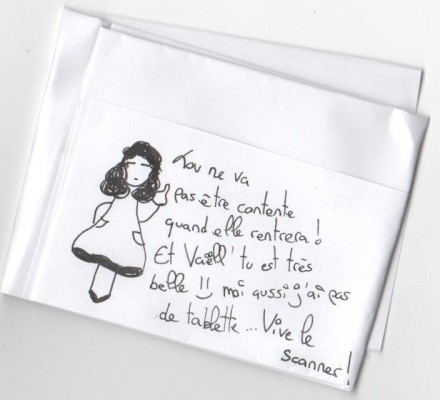 Lou ne va
pas être contente
quand elle rentrera !
Et Vaëll' tu est très
belle !! moi aussi j'ai pas
de tablette ... Vive le
scanner !